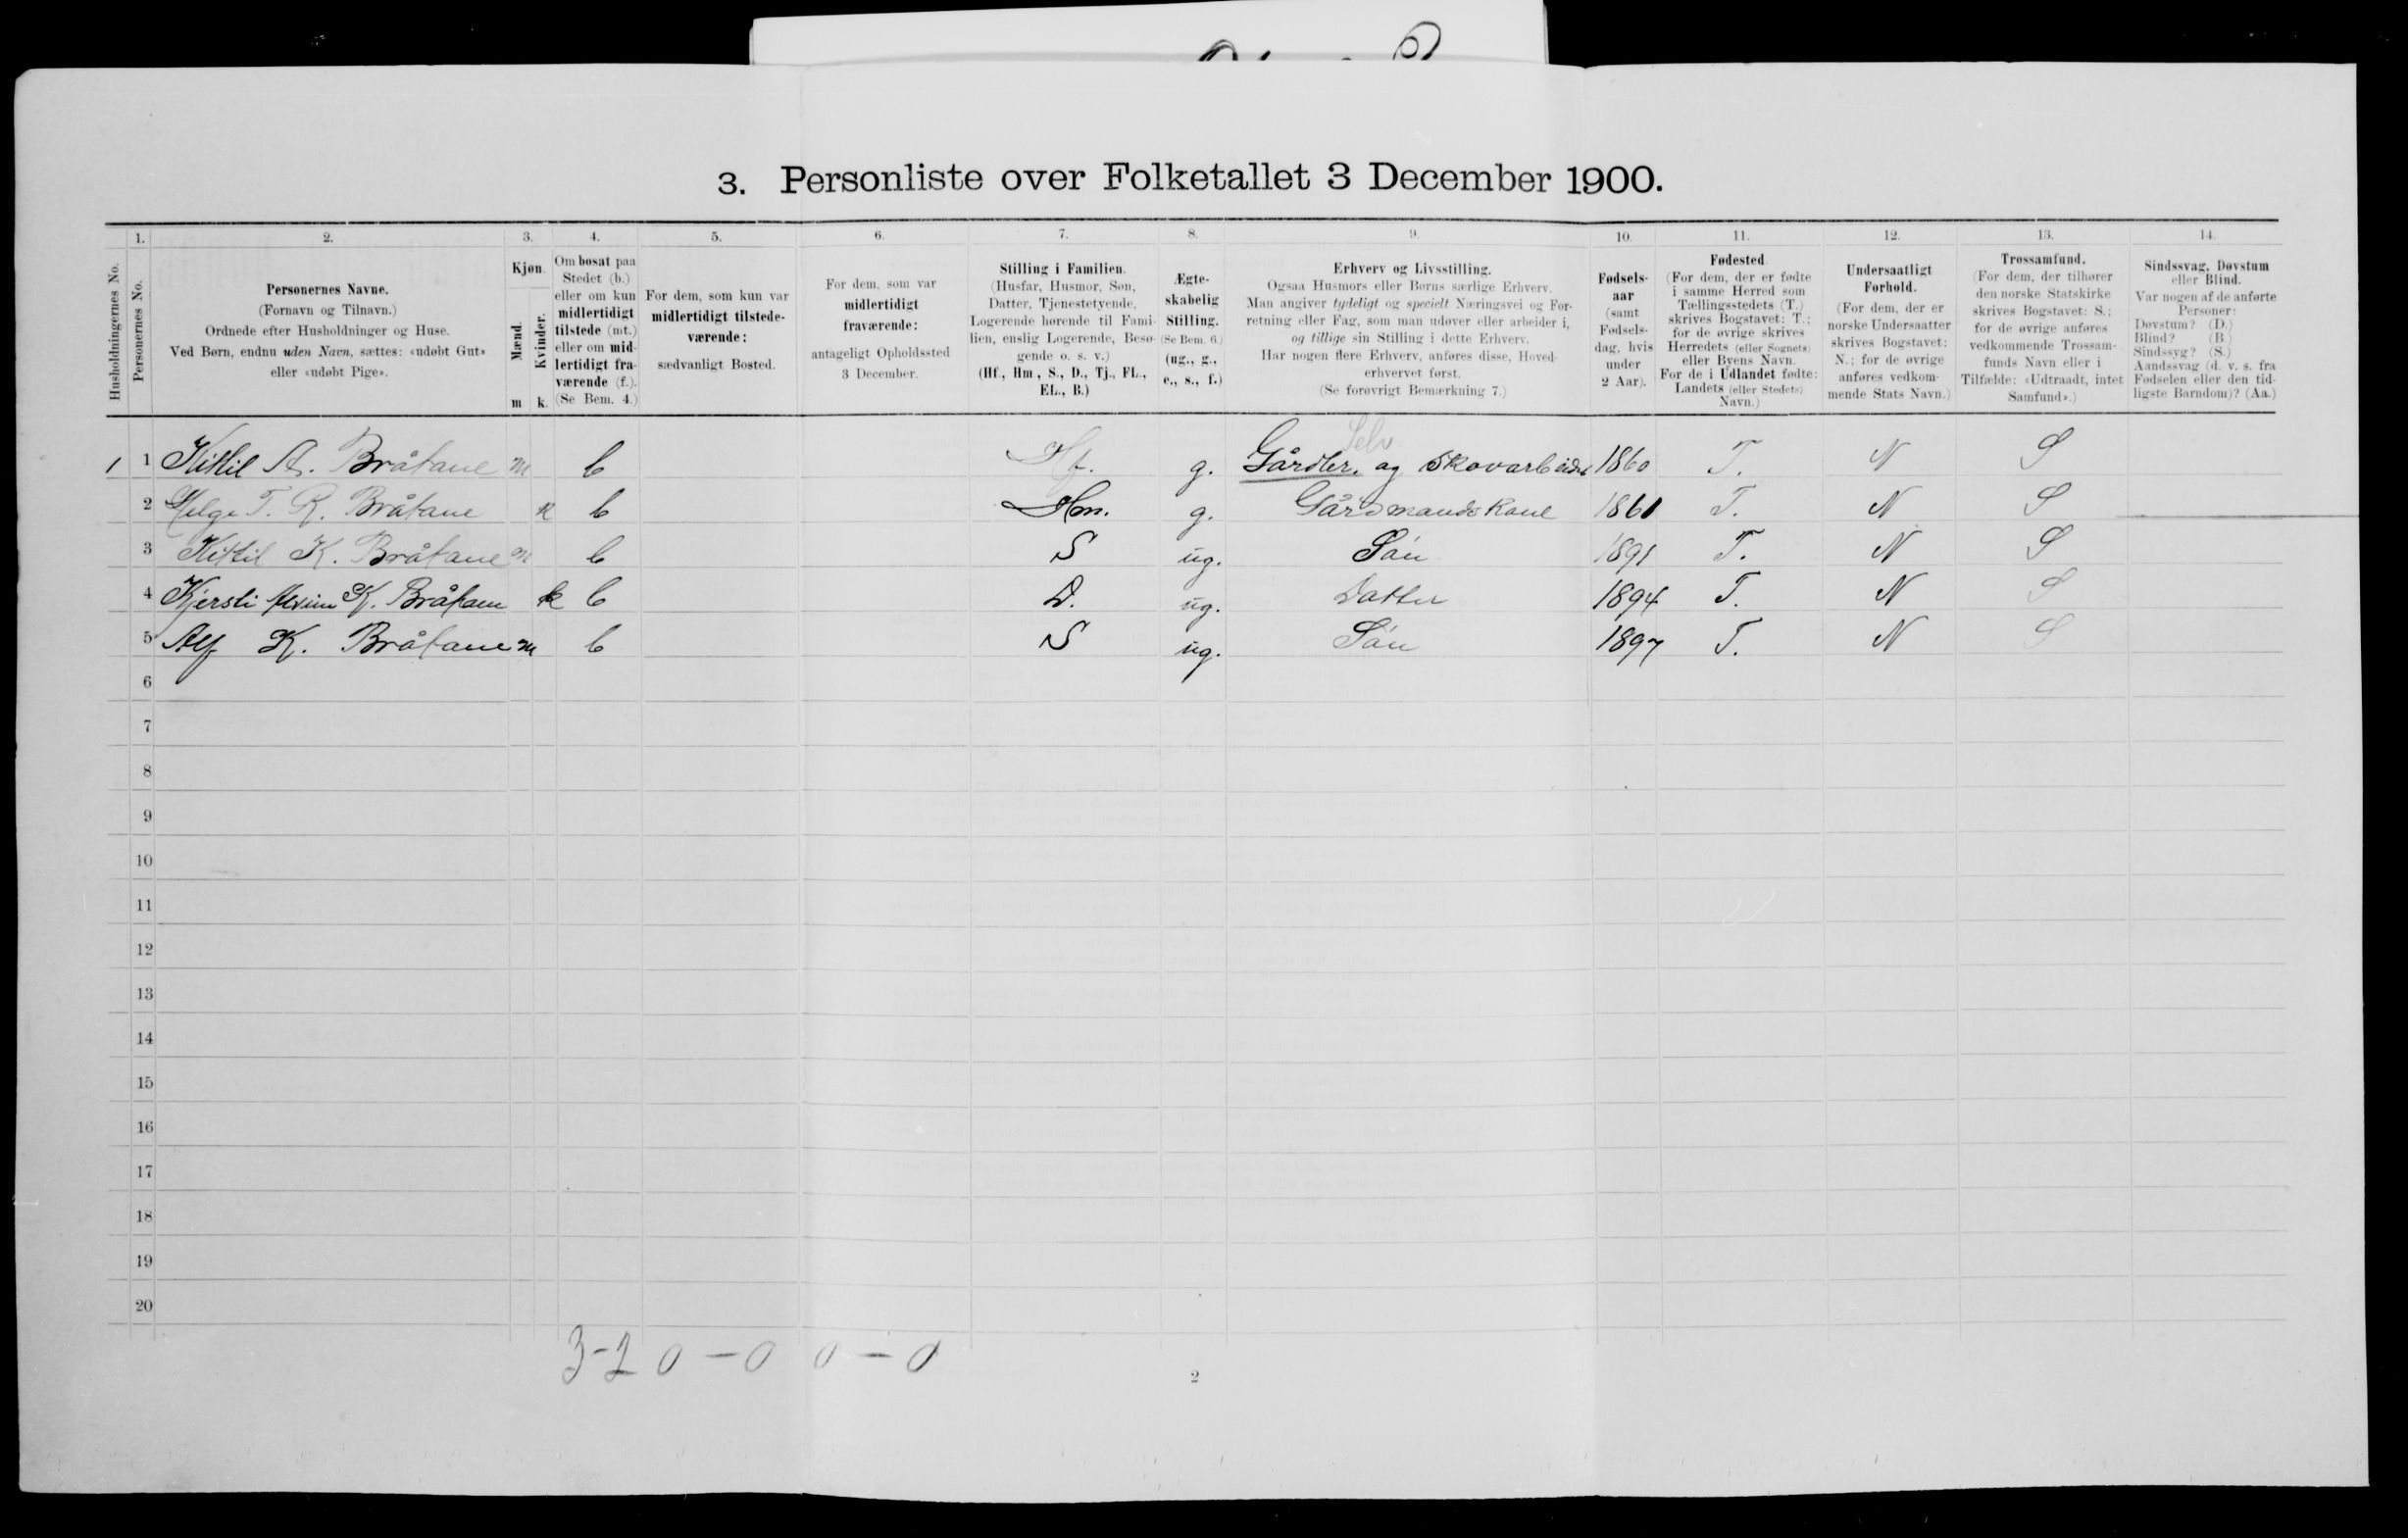 3. Personliste over Folketallet 3 December 1900.
1. 2. 3. 4. 5. 6. 7. 8. 9. 10. 11. 12. 13. 14.
Husholdningernes No.
Personernes No.
Personernes Navne.
(Fornavn og Tilnavn.)
Ordnede efter Husholdninger og Huse.
Ved Børn, endnu uden Navn, sættes: «udøbt Gut»
eller «udøbt Pige».
Kjøn.
Mænd.
Kvinder.
m k.
Om bosat paa
Stedet (b.)
eller om kun
midlertidigt
tilstede (mt.)
eller om mid-
lertidigt fra-
værende (f.).
(Se Bem. 4.)
For dem, som kun var
midlertidigt tilstede-
værende:
sædvanligt Bosted.
For dem, som var
midlertidigt
fraværende:
antageligt Opholdssted
3 December.
Stilling i Familien.
(Husfar, Husmor, Søn,
Datter, Tjenestetyende,
Logerende hørende til Fami-
lien, enslig Logerende, Besø-
gende o. s. v.)
(Hf., Hm., S., D., Tj., FL.,
EL., B.)
Ægte-
skabelig
Stilling.
(Se Bem. 6.)
(ug., g.,
e., s., f.)
Erhverv og Livsstilling.
Ogsaa Husmors eller Børns særlige Erhverv.
Man angiver tydeligt og specielt Næringsvei og For-
retning eller Fag, som man udøver eller arbeider i,
og tillige sin Stilling i dette Erhverv.
Har nogen flere Erhverv, anføres disse, Hoved-
erhvervet først.
(Se forøvrigt Bemærkning 7.)
Fødsels-
aar
(samt
Fødsels-
dag, hvis
under
2 Aar).
Fødested
(For dem, der er fødte
i samme Herred som
Tællingsstedets (T.)
skrives Bogstavet: T.;
for de øvrige skrives
Herredets (eller Sognets)
eller Byens Navn.
For de i Udlandet fødte:
Landets (eller Stedets)
Navn.)
Undersaatligt
Forhold.
(For dem, der er
norske Undersaatter
skrives Bogstavet:
N.; for de øvrige
anføres vedkom-
mende Stats Navn.)
Trossamfund.
(For dem, der tilhører
den norske Statskirke
skrives Bogstavet: S.;
for de øvrige anføres
vedkommende Trossam-
funds Navn eller i
Tilfælde: «Udtraadt, intet
Samfund».)
Sindssvag, Døvstum
eller Blind.
Var nogen af de anførte
Personer:
Døvstum? (D.)
Blind? (B.)
Sindssyg? (S.)
Aandssvag (d. v. s. fra
Fødselen eller den tid-
ligste Barndom)? (Aa.)
Selv
1 1 Kittil A. Bråtane m b Hf. g. Gårdbr. og Skovarbeider 1860 T. N S
2 Helge T. R. Bråtane k b Hm. g. Gårdmandskone 1861 T. N S
3 Kittil K. Bråtane m b S ug. Søn 1891 T. N S
4 Kjersti K. Bråtane k b D. ug. Datter 1894 T. N S
5 Alf K. Bråtane m b S ug. Søn 1897 T. N S
6
7
8
9
10
11
12
13
14
15
16
17
18
19
20
3-2 0-0 0-0
2